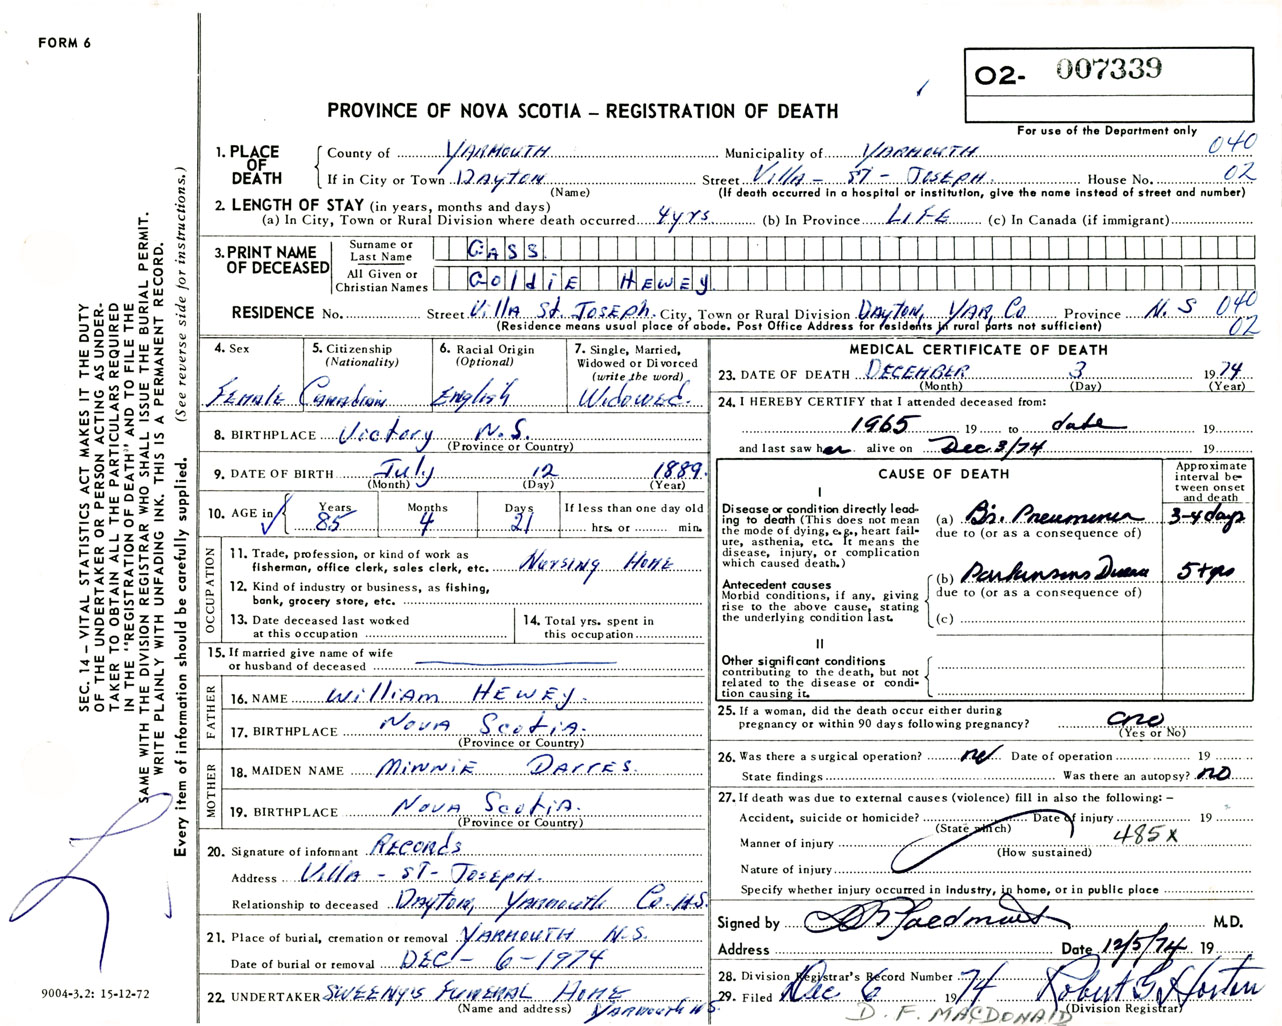 FORM 6
O2- 007339
PROVINCE OF NOVA SCOTIA – REGISTRATION OF DEATH
For use of the Department only
1. PLACE OF DEATH County of YARMOUTH Municipality of YARMOUTH 040
If in City or Town DAYTON Street Villa - ST - JOSEPH. House No. 02
(Name) (If death occurred in a hospital or institution, give the name instead of street and number)
2. LENGTH OF STAY (in years, months and days)
(a) In City, Town or Rural Division where death occurred 4 yrs (b) In Province LIFE (c) In Canada (if immigrant)
3. PRINT NAME OF DECEASED
Surname or Last Name GASS
All Given or Christian Names GOldIE HEWEY.
RESIDENCE No. Street Villa St. JOSEPH. City, Town or Rural Division DAYTON, YAR, Co Province N. S 040
(Residence means usual place of abode. Post Office Address for residents in rural parts not sufficient) 02
4. Sex FEMALE
5. Citizenship (Nationality) Canadian
6. Racial Origin (Optional) English
7. Single, Married, Widowed or Divorced (write the word) Widowed.
8. BIRTHPLACE Victory N.S.
(Province or Country)
9. DATE OF BIRTH July 12 1889.
(Month) (Day) (Year)
10. AGE in Years 85 Months 4 Days 21 If less than one day old hrs. or min.
OCCUPATION
11. Trade, profession, or kind of work as fisherman, office clerk, sales clerk, etc. Nursing Home
12. Kind of industry or business, as fishing, bank, grocery store, etc.
13. Date deceased last worked at this occupation
14. Total yrs. spent in this occupation
15. If married give name of wife or husband of deceased
FATHER
16. NAME William HEWEY.
17. BIRTHPLACE NOVA Scotia.
(Province or Country)
MOTHER
18. MAIDEN NAME MINNIE DARRES.
19. BIRTHPLACE NOVA Scotia.
(Province or Country)
20. Signature of informant RECORds
Address Villa - ST - JOSEPH.
Relationship to deceased DAYTON, YARMOUTH Co. N.S.
21. Place of burial, cremation or removal YARMOUTH N.S.
Date of burial or removal DEC - 6 - 1974
22. UNDERTAKER SWEENY'S FUNERAL HOME
(Name and address) YARMOUTH N.S.
MEDICAL CERTIFICATE OF DEATH
23. DATE OF DEATH DECEMBER 3 1974
(Month) (Day) (Year)
24. I HEREBY CERTIFY that I attended deceased from:
1965 19 to date 19
and last saw her alive on Dec. 3/74 19
CAUSE OF DEATH
Approximate interval between onset and death
I
Disease or condition directly leading to death (This does not mean the mode of dying, e.g., heart failure, asthenia, etc. It means the disease, injury, or complication which caused death.)
(a) Br. Pneumonia 3-4 days
due to (or as a consequence of)
Antecedent causes
Morbid conditions, if any, giving rise to the above cause, stating the underlying condition last.
(b) Parkinsons Disease 5+ yrs
due to (or as a consequence of)
(c)
II
Other significant conditions contributing to the death, but not related to the disease or condition causing it.
25. If a woman, did the death occur either during pregnancy or within 90 days following pregnancy? no
(Yes or No)
26. Was there a surgical operation? no Date of operation 19
State findings Was there an autopsy? no
27. If death was due to external causes (violence) fill in also the following: –
Accident, suicide or homicide? Date of injury 19
(State which)
Manner of injury 485X
(How sustained)
Nature of injury
Specify whether injury occurred in industry, in home, or in public place
Signed by M.D.
Address Date 12/5/74 19
28. Division Registrar's Record Number
29. Filed Dec 6 1974 Robert G Horton
(Division Registrar)
D. F. MACDONALD
SEC. 14 – VITAL STATISTICS ACT MAKES IT THE DUTY
OF THE UNDERTAKER OR PERSON ACTING AS UNDER-
TAKER TO OBTAIN ALL THE PARTICULARS REQUIRED
IN THE "REGISTRATION OF DEATH" AND TO FILE THE
SAME WITH THE DIVISION REGISTRAR WHO SHALL ISSUE THE BURIAL PERMIT.
WRITE PLAINLY WITH UNFADING INK. THIS IS A PERMANENT RECORD.
Every item of information should be carefully supplied. (See reverse side for instructions.)
9004-3.2: 15-12-72